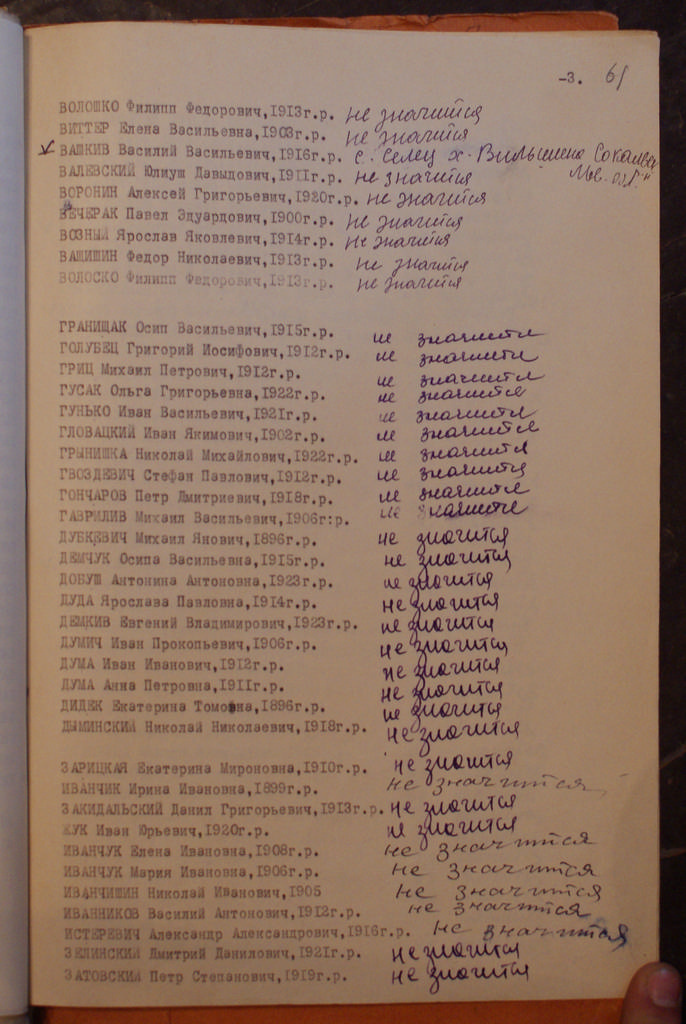 -3. 61
ВОЛОШКО Филипп Федорович,1913г.р. не значится
ВИТТЕР Елена Васильевна,1903г.р. не значится
ВАШКИВ Василий Васильевич,1916г.р. с. Селец х. Вильшено Сокальск
Льв. обл.
ВАЛЕВСКИЙ Юлиуш Давыдович,1911г.р. не значится
ВОРОНИН Алексей Григорьевич,1920г.р. не значится
ВЕЧЕРАК Павел Эдуардович,1900г.р. не значится
ВОЗНЫЙ Ярослав Яковлевич,1914г.р. не значится
ВАШИШИН Федор Николаевич,1913г.р. не значится
ВОЛОСКО Филипп Федорович,1913г.р. не значится
ГРАНИЩАК Осип Васильевич,1915г.р. не значится
ГОЛУБЕЦ Григорий Иосифович,1912г.р. не значится
ГРИЦ Михаил Петрович,1912г.р. не значится
ГУСАК Ольга Григорьевна,1922г.р. не значится
ГУНЬКО Иван Васильевич,1921г.р. не значится
ГЛОВАЦКИЙ Иван Якимович,1902г.р. не значится
ГРЫНИШКА Николай Михайлович,1922г.р. не значится
ГВОЗДЕВИЧ Стефан Павлович,1912г.р. не значится
ГОНЧАРОВ Петр Дмитриевич,1918г.р. не значится
ГАВРИЛИВ Михаил Васильевич,1906г:р. не значится
ДУБКЕВИЧ Михаил Янович,1896г.р. не значится
ДЕМЧУК Осипа Васильевна,1915г.р. не значится
ДОБУШ Антонина Антоновна,1923г.р. не значится
ДУДА Ярослава Павловна,1914г.р. не значится
ДЕМКИВ Евгений Владимирович,1923г.р. не значится
ДУМИЧ Иван Прокопьевич,1906г.р. не значится
ДУМА Иван Иванович,1912г.р. не значится
ДУМА Анна Петровна,1911г.р. не значится
ДИДЕК Екатерина Томовна,1896г.р. не значится
ДЫМИНСКИЙ Николай Николаевич,1918г.р. не значится
ЗАРИЦКАЯ Екатерина Мироновна,1910г.р. не значится
ИВАНЧИК Ирина Ивановна,1899г.р. не значится
ЗАКИДАЛЬСКИЙ Данил Григорьевич,1913г.р. не значится
ЖУК Иван Юрьевич,1920г.р. не значится
ИВАНЧУК Елена Ивановна,1908г.р. не значится
ИВАНЧУК Мария Ивановна,1906г.р. не значится
ИВАНЧИШИН Николай Иванович,1905 не значится
ИВАННИКОВ Василий Антонович,1912г.р. не значится
ИСТЕРЕВИЧ Александр Александрович,1916г.р. не значится
ЗЕЛИНСКИЙ Дмитрий Данилович,1921г.р. не значится
ЗАТОВСКИЙ Петр Степанович,1919г.р. не значится